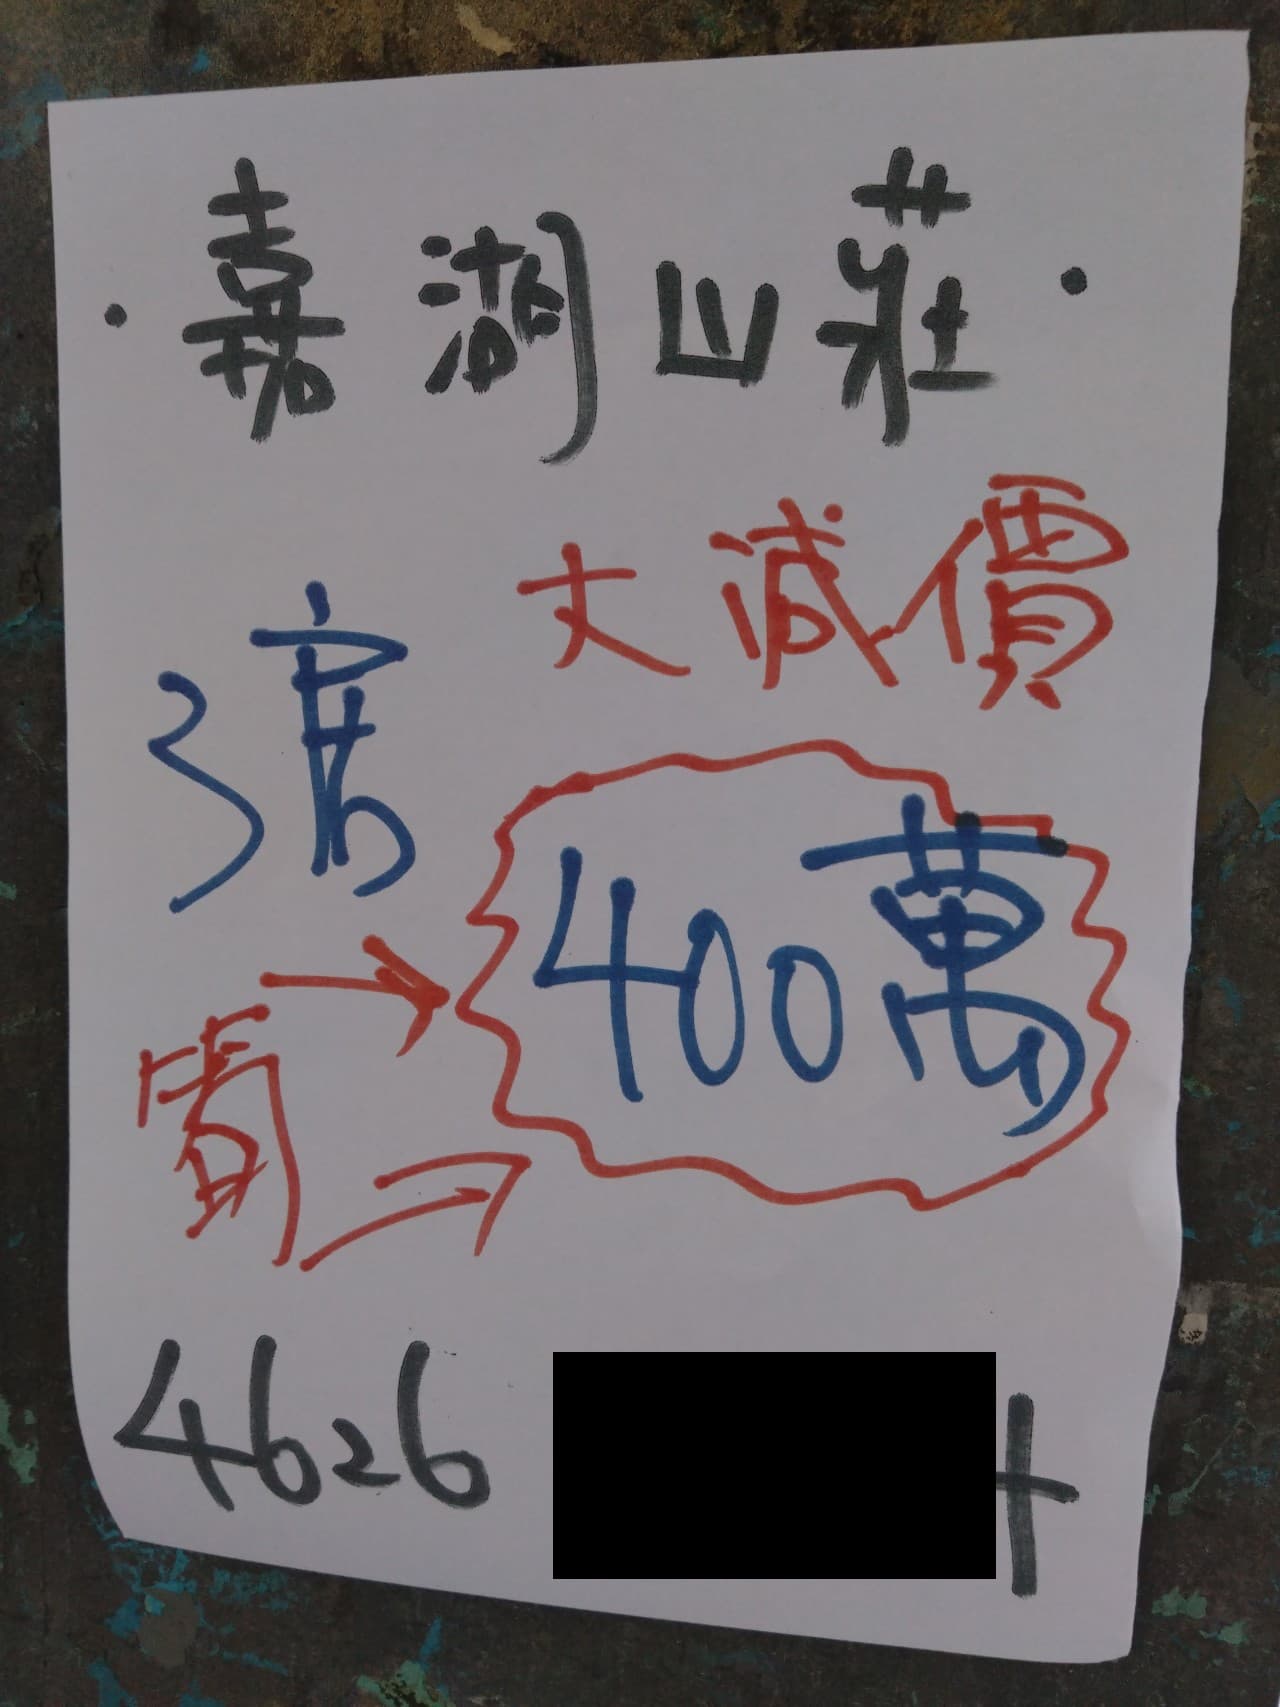 嘉湖山莊
大減價
3房
400萬
賣
4626